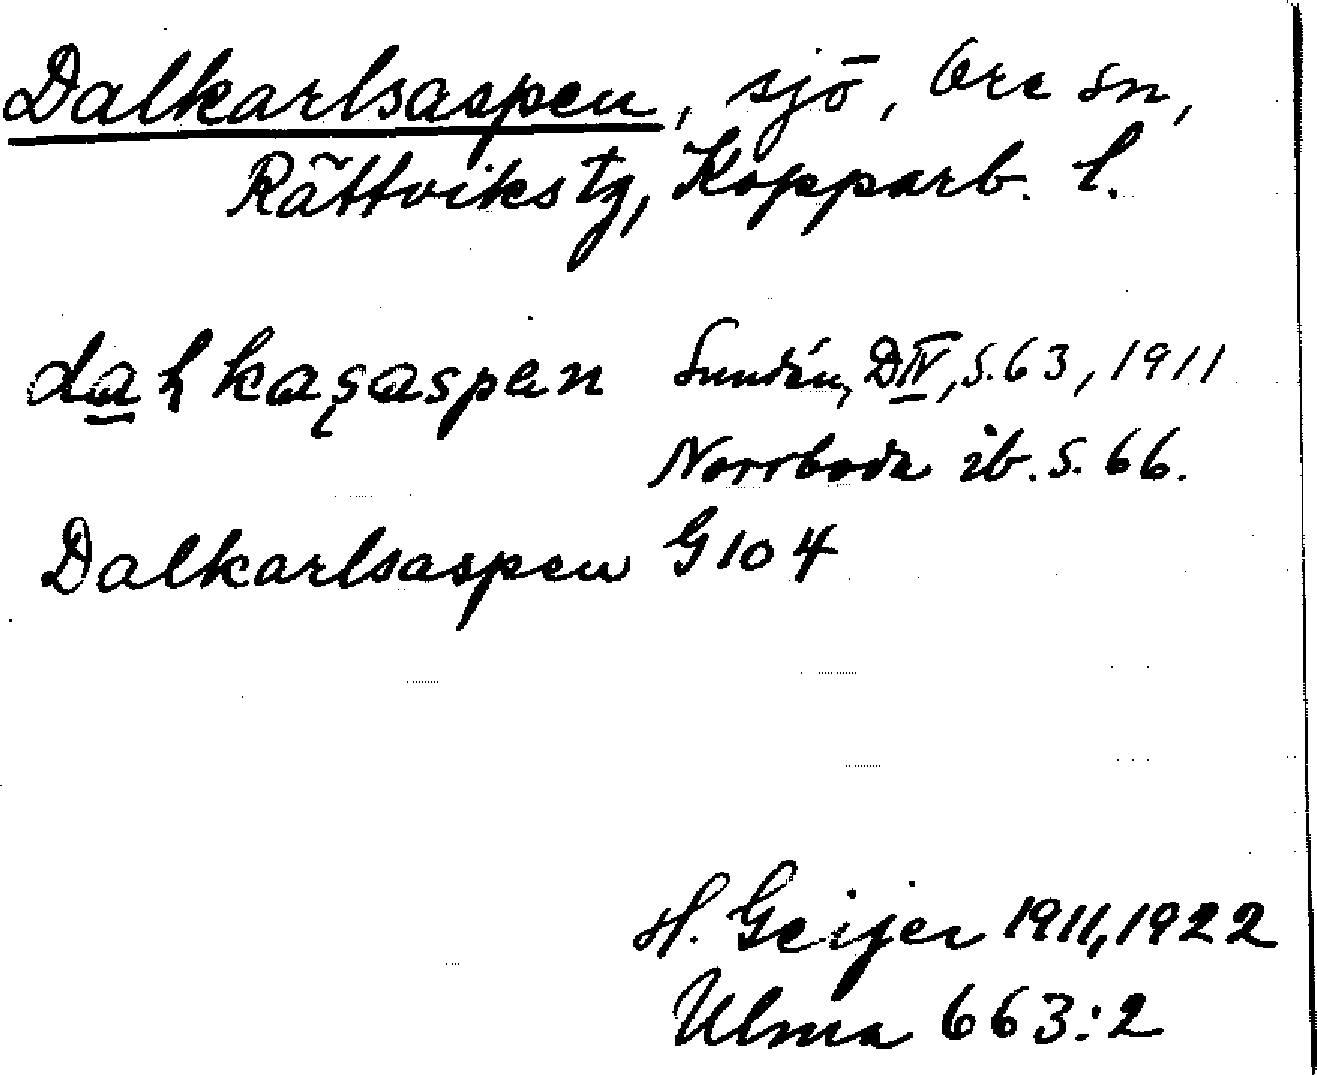 Dalkarlsaspen, sjö, Ore sn,
Rättviks tg, Kopparb. l.
Sundén, D IV, s. 63, 1911
Norrboda ib. s. 66.
Dalkarlsaspen G 104
H. Geijer 1911, 1922
Ulma 663:2